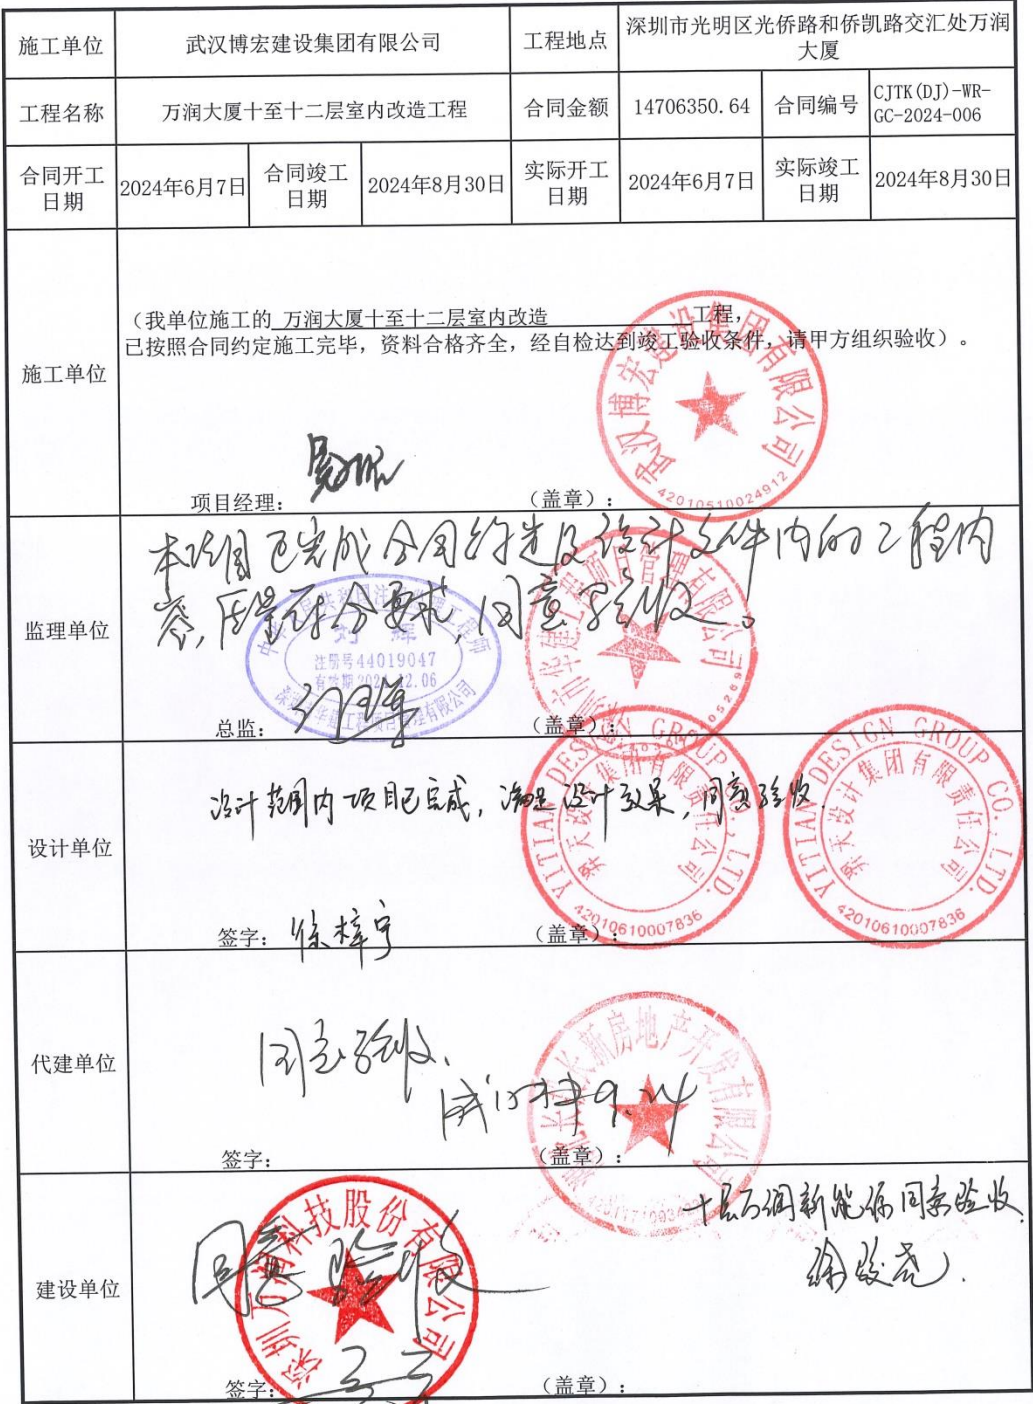 施工单位 武汉博宏建设集团有限公司 工程地点 深圳市光明区光侨路和侨凯路交汇处万润
大厦
工程名称 万润大厦十至十二层室内改造工程 合同金额 14706350.64 合同编号 CJTK(DJ)-WR-
GC-2024-006
合同开工 2024年6月7日 合同竣工 2024年8月30日 实际开工 2024年6月7日 实际竣工 2024年8月30日
日期 日期 日期 日期
施工单位
（我单位施工的 万润大厦十至十二层室内改造 工程，
已按照合同约定施工完毕，资料合格齐全，经自检达到竣工验收条件，请甲方组织验收）。
武汉博宏建设集团有限公司
42010510024912
项目经理： （盖章）：
监理单位
本项目已完成合同约定及设计文件内的工程内
容，质量符合要求，同意验收。
刘辉
注册号44019047
有效期2024.12.06
总监： （盖章）：
设计单位
设计范围内项目已完成，满足设计效果，同意验收.
YITIAN DESIGN GROUP CO., LTD.
奕天设计集团有限责任公司
42010610007836
YITIAN DESIGN GROUP CO., LTD.
奕天设计集团有限责任公司
42010610007836
签字：徐梓宁 （盖章）：
代建单位
同意验收.
9.24
签字： （盖章）：
建设单位
十层万润新能源同意验收
同意验收
深圳万润科技股份有限公司
签字： （盖章）：